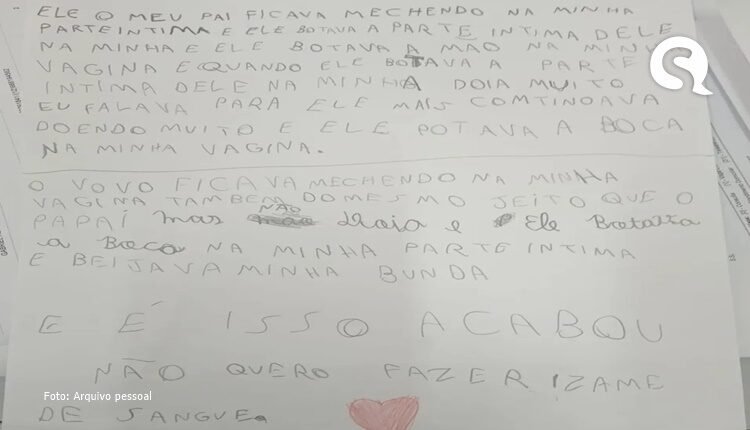 ELE O MEU PAI FICAVA MECHENDO NA MINHA
PARTE INTIMA E ELE BOTAVA A PARTE INTIMA DELE
NA MINHA E ELE BOTAVA A MAO NA MINH
VAGINA E QUANDO ELE BOTAVA A PARTE
INTIMA DELE NA MINHA DOIA MUITO
EU FALAVA PARA ELE MAIS COMTINOAVA
DOENDO MUITO E ELE POTAVA A BOCA
NA MINHA VAGINA.
O VOVO FICAVA MECHENDO NA MINHA
VAGINA TAMBEM DO MESMO JEITO QUE O
PAPAI mas NÃO doia e Ele Botava
a Boca NA MINHA PARTE INTIMA
E BEIJAVA MINHA BUNDA
E É ISSO ACABOU
NÃO QUERO FAZER IZAME
DE SANGUE
Foto: Arquivo pessoal